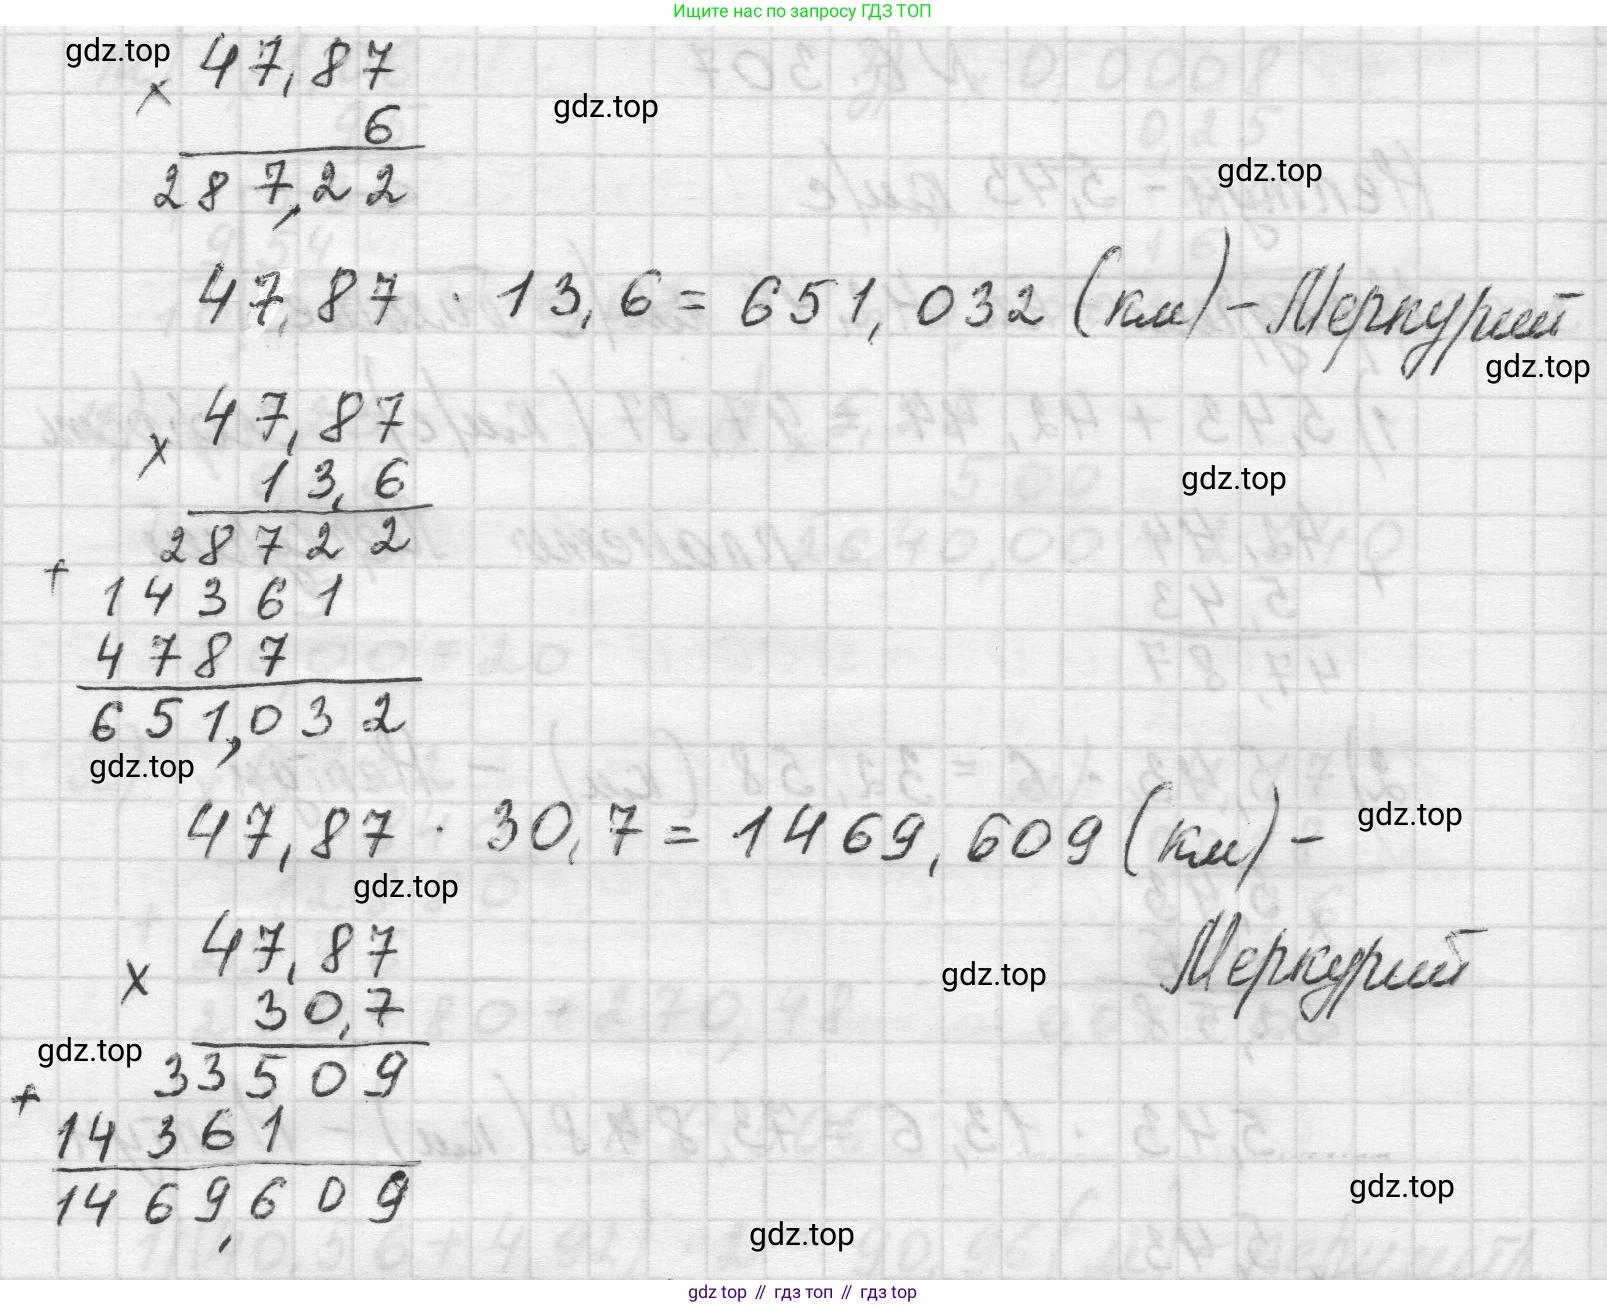 Ищите нас по запросу ГДЗ ТОП
gdz.top
47,87
×
gdz.top
6
287,22
gdz.top
47,87 · 13,6 = 651,032 (км) – Меркурий
gdz.top
47,87
×
13,6
gdz.top
28722
+
14361
4787
651,032
gdz.top
47,87 · 30,7 = 1469,609 (км) –
gdz.top
Меркурий
gdz.top
47,87
×
gdz.top
30,7
gdz.top
33509
+
14361
1469,609
gdz.top
gdz.top
gdz top // гдз топ // гдз top